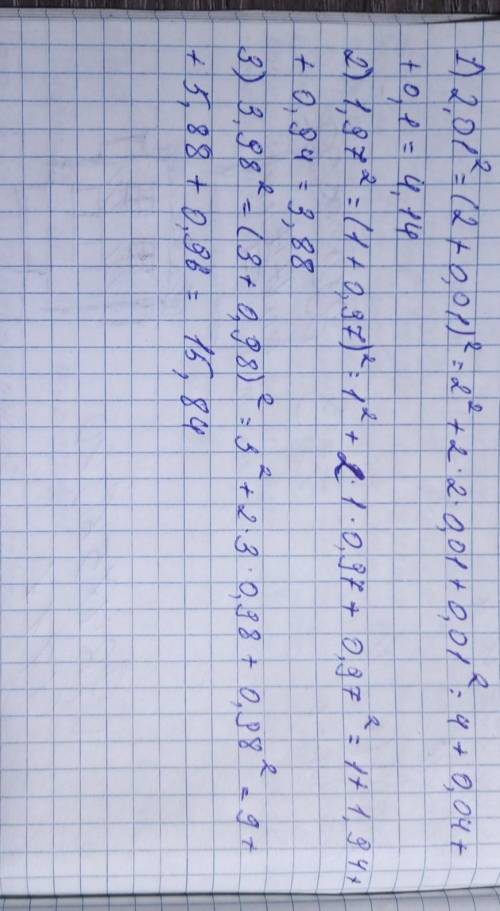 1) 2,01² = (2 + 0,01)² = 2² + 2·2·0,01 + 0,01² = 4 + 0,04 +
+ 0,1 = 4,14
2) 1,97² = (1 + 0,97)² = 1² + 2·1·0,97 + 0,97² = 1 + 1,94 +
+ 0,94 = 3,88
3) 3,98² = (3 + 0,98)² = 3² + 2·3·0,98 + 0,98² = 9 +
+ 5,88 + 0,96 = 15,84